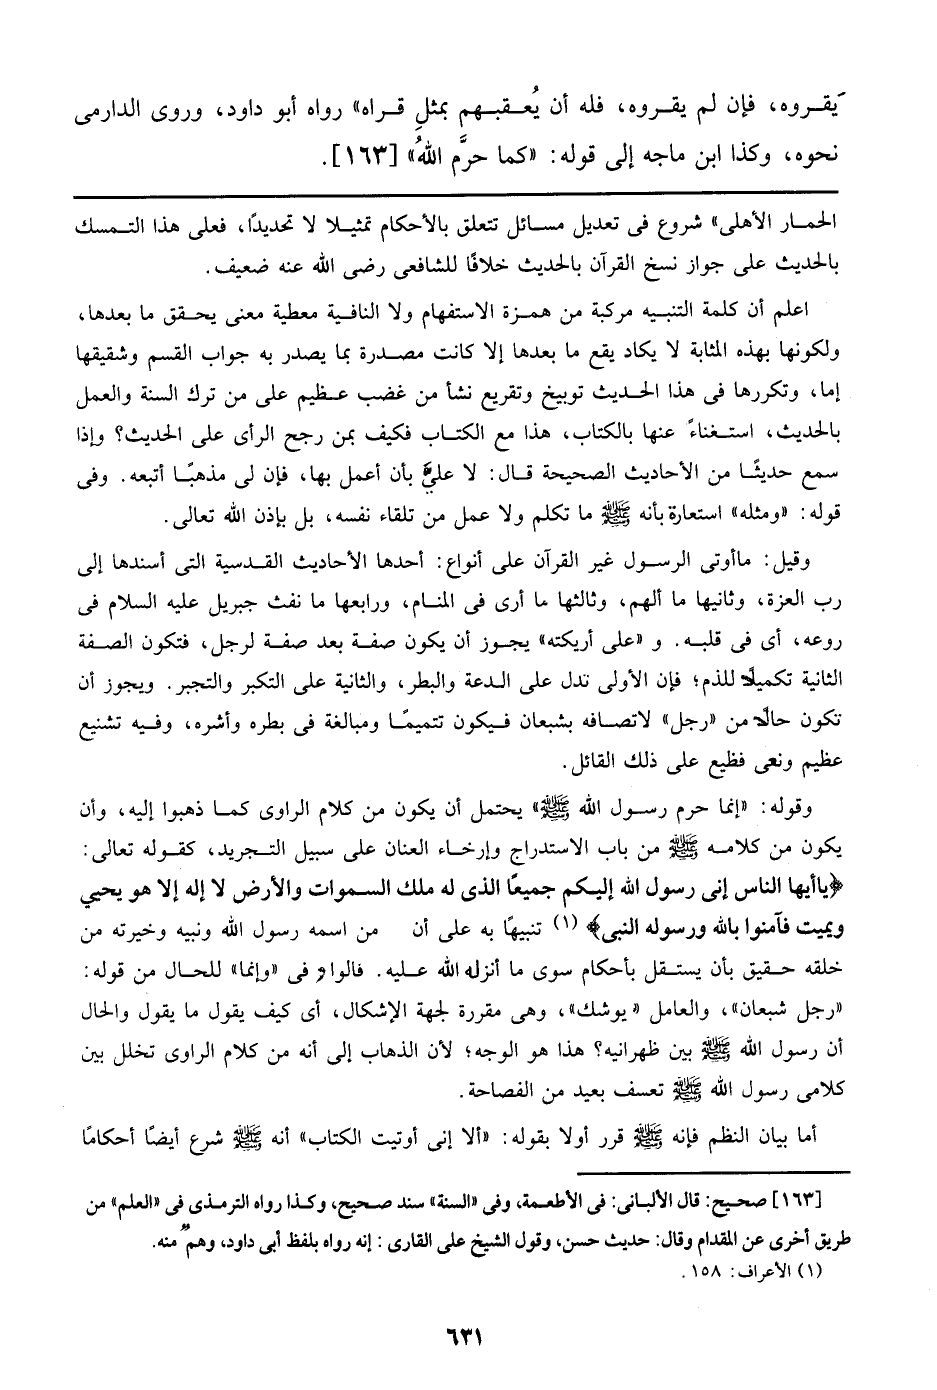 يَقـروه، فإن لم يقـروه، فله أن يُعـقبـهم بمثلِ قـراه» رواه أبو داود، وروى الدارمى
نحوه، وكذا ابن ماجه إلى قوله: «كما حرَّم اللهُ» [١٦٣].
الحمـار الأهلى» شروع فى تعديل مسـائل تتعلق بالأحكام تمثيـلا لا تحديدًا، فعلى هذا التـمسك
بالحديث على جواز نسخ القرآن بالحديث خلافًا للشافعى رضى الله عنه ضعيف.
اعلم أن كلمة التنبـيه مركبة من همـزة الاستفهام ولا النافـية معطية معنى يحـقق ما بعدها،
ولكونها بهذه المثابة لا يكاد يقع ما بعدها إلا كانت مصـدرة بما يصدر به جواب القسم وشقيقها
إما، وتكررها فى هذا الحـديث توبيخ وتقريع نشأ من غضب عـظيم على من ترك السنة والعمل
بالحديث، استـغناءً عنها بالكتاب، هذا مع الكتـاب فكيف بمن رجح الرأى على الحديث؟ وإذا
سمع حديثًـا من الأحاديث الصحيحة قـال: لا علىَّ بأن أعمل بها، فإن لى مذهبًـا أتبعه. وفى
قوله: «ومثله» استعارة بأنه ﷺ ما تكلم ولا عمل من تلقاء نفسه، بل بإذن الله تعالى.
وقيل: ماأوتى الرسـول غير القرآن على أنواع: أحدها الأحاديث القـدسية التى أسندها إلى
رب العزة، وثانيها ما ألهم، وثالثها ما أرى فى المنـام، ورابعها ما نفث جبريل عليه السلام فى
روعه، أى فى قلبـه. و «على أريكته» يجـوز أن يكون صفـة بعد صفة لرجل، فتكون الصـفة
الثانية تكميلًا للذم؛ فإن الأولى تدل على الـدعة والبطر، والثانية على التكبر والتجبر. ويجوز أن
تكون حالًا من «رجل» لاتصـافه بشبعان فـيكون تتميمًـا ومبالغة فى بطره وأشره، وفـيه تشنيع
عظيم ونعى فظيع على ذلك القائل.
وقوله: «إنما حرم رسـول الله ﷺ» يحتمل أن يكون من كلام الراوى كمـا ذهبوا إليه، وأن
يكون من كلامـه ﷺ من باب الاستدراج وإرخـاء العنان على سبيل التـجريد، كقـوله تعالى:
﴿ياأيها الناس إنى رسول الله إليكم جميعًا الذى له ملك السموات والأرض لا إله إلا هو يحيي
ويميت فآمنوا بالله ورسوله النبى﴾ (١) تنبيهًا به على أن من اسمه رسول الله ونبيه وخيرته من
خلقه حـقيق بأن يستـقل بأحكام سوى ما أنزله الله عـليه. فالواو فى «وإنما» للحـال من قوله:
«رجل شبعان»، والعامل «يوشك»، وهى مقررة لجهة الإشكال، أى كيف يقول ما يقول والحال
أن رسول الله ﷺ بين ظهرانيه؟ هذا هو الوجه؛ لأن الذهاب إلى أنه من كلام الراوى تخلل بين
كلامى رسول الله ﷺ تعسف بعيد من الفصاحة.
أما بيان النظم فإنه ﷺ قرر أولا بقوله: «ألا إنى أوتيت الكتاب» أنه ﷺ شرع أيضًا أحكامًا
[١٦٣] صحيح: قال الألبانى: فى الأطعمة، وفى «السنة» سند صـحيح، وكـذا رواه الترمـذى فى «العلم» من
طريق أخرى عن المقدام وقال: حديث حسن، وقول الشيخ على القارى : إنه رواه بلفظ أبى داود، وهمٌ منه.
(١) الأعراف: ١٥٨.
٦٣١